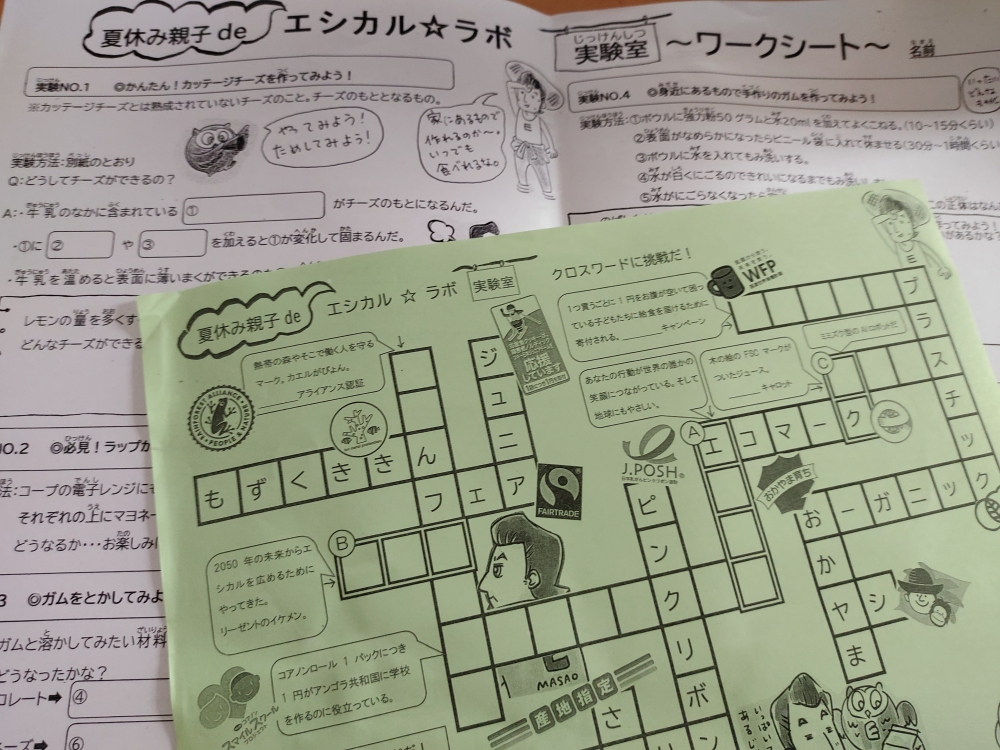 夏休み親子 de
エシカル☆ラボ
実験室
～ワークシート～
名前
実験NO.1 ◎かんたん！カッテージチーズを作ってみよう！
※カッテージチーズとは熟成されていないチーズのこと。チーズのもととなるもの。
やってみよう！
ためしてみよう！
家にあるもので
作れるのか～。
いつでも
食べれるな。
実験方法：別紙のとおり
Q：どうしてチーズができるの？
A：・牛乳のなかに含まれている ① がチーズのもとになるんだ。
・①に ② や ③ を加えると①が変化して固まるんだ。
・牛乳を温めると表面に薄いまくができる
レモンの量を多くす
どんなチーズができる
NO.2 ◎必見！ラップか
法：コープの電子レンジに
それぞれの上にマヨネー
どうなるか・・・お楽しみ
3 ◎ガムをとかしてみよ
ガムと溶かしてみたい材料
どうなったかな？
コレート➡ ④
ーズ➡ ⑥
実験NO.4 ◎身近にあるもので手作りのガムを作ってみよう！
実験方法：①ボウルに強力粉50グラムと水20mlを加えてよくこねる。(10～15分くらい)
②表面がなめらかになったらビニール袋に入れて休ませる(30分～1時間くらい
③ボウルに水を入れてもみ洗いする。
④水が白くにごるのできれいになるまでもみ洗い
⑤水がにごらなくなったら
この正体はなん
夏休み親子 de
エシカル ☆ ラボ
実験室
クロスワードに挑戦だ！
熱帯の森やそこで働く人を守る
マーク。カエルがぴょん。
アライアンス認証
RAINFOREST ALLIANCE
PEOPLE & NATURE
応援
しています
1つ買うごとに 1 円をお腹が空いて困っ
ている子どもたちに給食を届けるために
寄付される。
キャンペーン
WFP
あなたの行動が世界の誰かの
笑顔につながっている。そして
地球にもやさしい。
木の絵の FSC マークが
ついたジュース。
キャロット
ミミズク型の AI ロボットだ
J.POSH
FAIRTRADE
おかやま育ち
プラスチック
ジュニア
エコマーク
もずくききん
フェア
ピンクリボン
オーガニック
おかヤま
シ
A
B
C
2050 年の未来からエ
シカルを広めるために
やってきた。
リーゼントのイケメン。
コアノンロール 1 パックにつき
1 円がアンゴラ共和国に学校
を作るのに役立っている。
コアノン
スマイルスクール
プロジェクト
MASAO
産地指定
さ